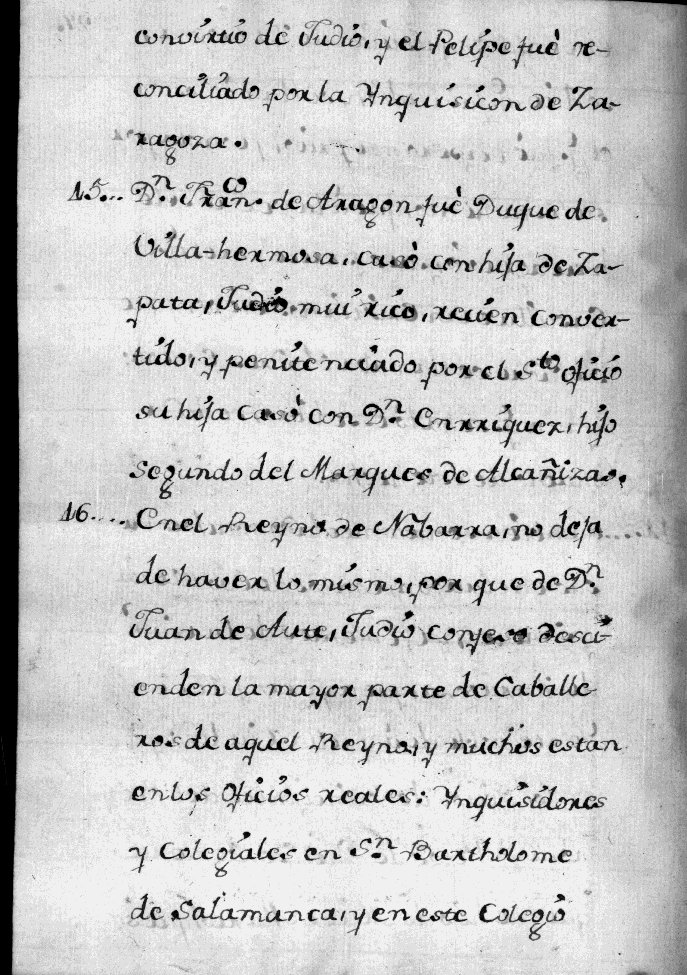 convirtió de Judio, y el Felipe fuè re-
conciliado por la Ynquisicon de Za-
ragoza.
15... Dn. Franco. de Aragon fuè Duque de
Villa-hermosa, casò con hija de Za-
pata, Judio mui rico, recien conver-
tido, y penitenciado por el Sto oficio
su hija casò con Dn. Enrriquez, hijo
segundo del Marques de Alcañizas.
16.... Enel Reyno de Nabarra, no deja
de haver lo mismo, por que de Dn.
Juan de Aute, Judio conjeso desci-
enden la mayor parte de Caballe
ros de aquel Reyno, y muchos estan
enlos Oficios reales: Ynquisidores
y Colegiales en Sn. Bartholome
de Salamanca, y en este Colegio